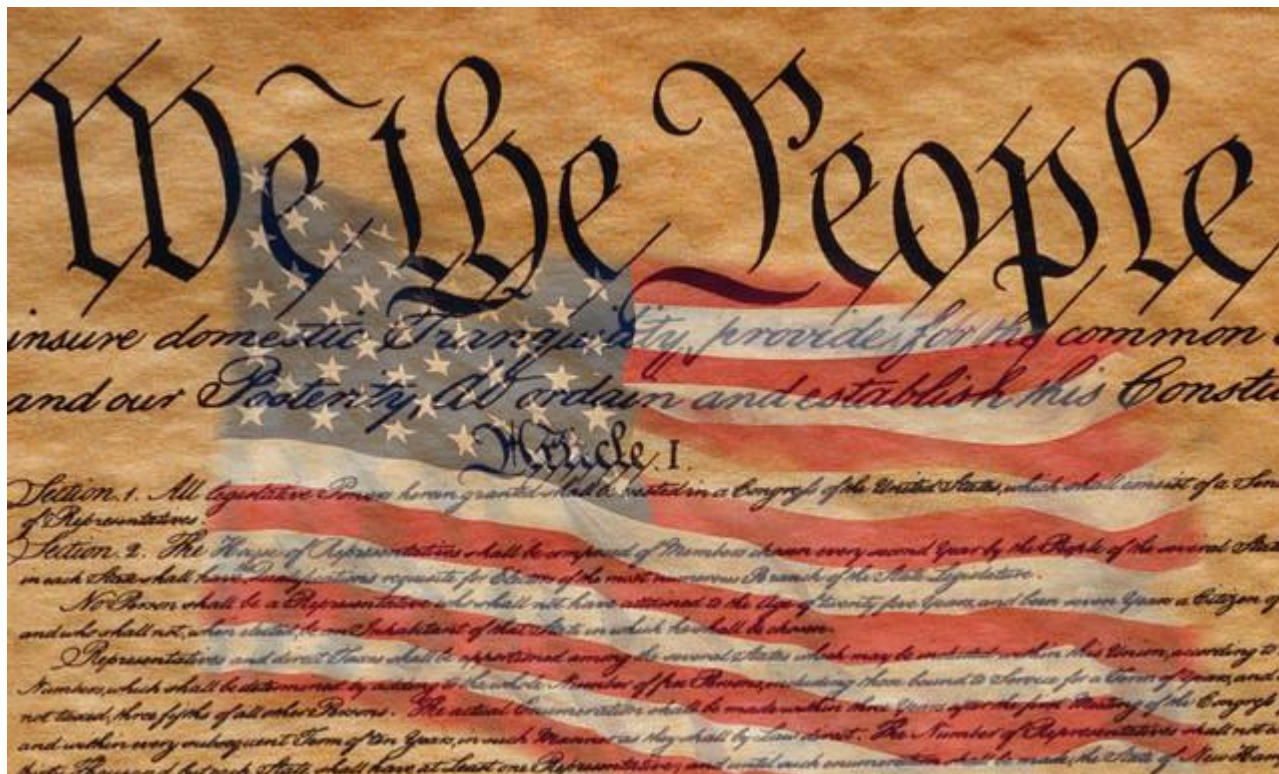 We the People
insure domestic Tranquility, provide for the common
and our Posterity, do ordain and establish this Constitu
Article. I.
Section. 1. All legislative Powers herein granted shall be vested in a Congress of the United States, which shall consist of a Sen
of Representatives.
Section. 2. The House of Representatives shall be composed of Members chosen every second Year by the People of the several Stat
in each State shall have the Qualifications requisite for Electors of the most numerous Branch of the State Legislature.
No Person shall be a Representative who shall not have attained to the Age of twenty five Years, and been seven Years a Citizen of
and who shall not, when elected, be an Inhabitant of that State in which he shall be chosen.
Representatives and direct Taxes shall be apportioned among the several States which may be included within this Union, according to
Numbers, which shall be determined by adding to the whole Number of free Persons, including those bound to Service for a Term of Years, and
not taxed, three fifths of all other Persons. The actual Enumeration shall be made within three Years after the first Meeting of the Congress
and within every subsequent Term of ten Years, in such Manner as they shall by Law direct. The Number of Representatives shall not e
thirty Thousand, but each State shall have at Least one Representative; and until such enumeration shall be made, the State of New Ham